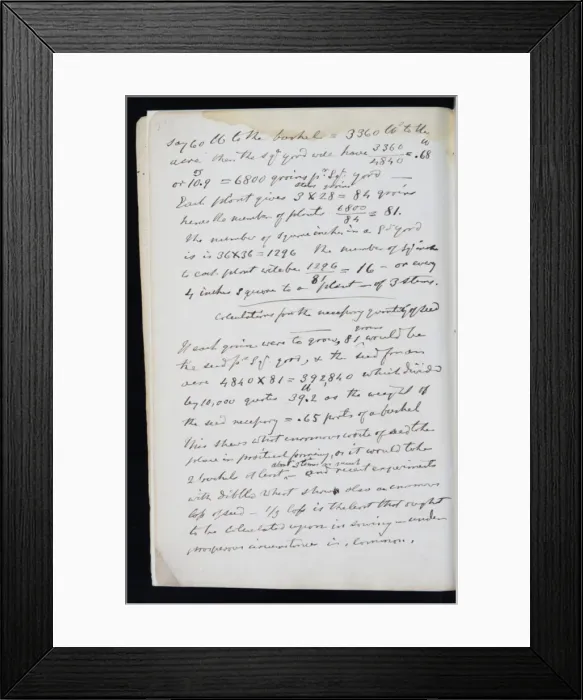 say 60 lb to the bushel = 3360 lb to the
acre then the sqr yard will have 3360/4840 = .68 lb
or 10.9 = 6800 grains pr Sqr yard —
Each plant gives 3 stems X 28 grains = 84 grains
hence the number of plants 6800/84 = 81.
The number of square inches in a Sqr yard
is is 36X36 = 1296 The number of sqr inches
to each plant will be 1296/81 = 16 — or every
4 inches square to a plant — of 3 stems.
Calculations for the necessary quantity of seed
If each grain were to grow, 81 grains would be
the seed pr Sqr yard, & the seed for an
acre 4840 X 81 = 392,040 which divided
by 10,000 quotes 39.2 lb as the weight of
the seed necessary = .65 parts of a bushel
This shews what enormous waste of seed takes
place in practical farming, as it would take
2 bushel at least, — and recent experiments
with dibbled wheat show also an enormous
loss of seed — 1/3 loss is the least that ought
to be calculated upon in sowing — under
prosperous circumstances in common.